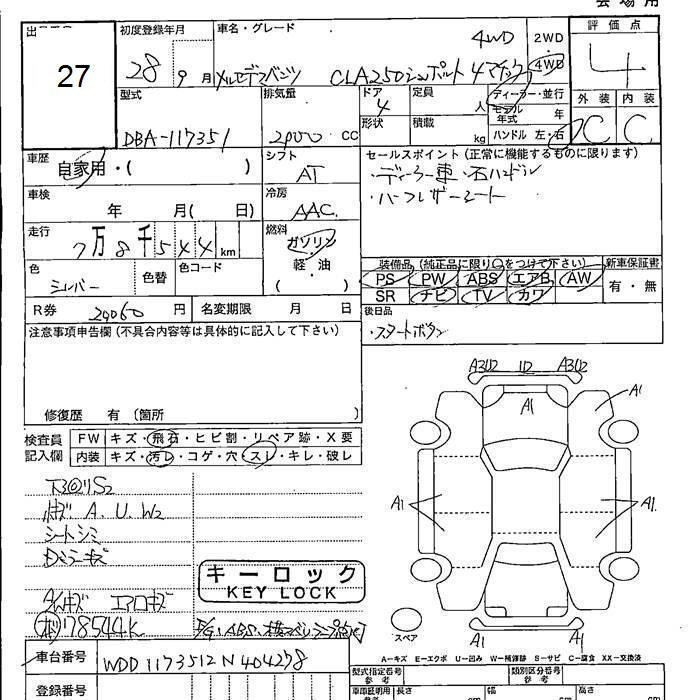 会場用
27
初度登録年月
28 9月
車名・グレード
4WD
メルセデスベンツ CLA250シュポルト 4マチック
2WD
・
4WD
評価点
4
外装 内装
C C
型式
DBA-117351
排気量
2000 CC
ドア
4
形状
定員
人
積載
kg
ディーラー・並行
モデル
年式 年
ハンドル 左・右
車歴
自家用・( )
シフト
AT
セールスポイント(正常に機能するものに限ります)
・ディーラー車・右ハンドル
・ハーフレザーシート
車検
年 月( 日)
冷房
AAC
走行
7万8千544km
燃料
ガソリン
軽・油
( )
色
シルバー
色替
色コード
装備品(純正品に限り○をつけて下さい)
PS PW ABS エアB AW
SR ナビ TV カワ
新車保証書
有・無
R券 20060 円
名変期限 月 日
後日品
・スタートボタン
注意事項申告欄(不具合内容等は具体的に記入して下さい)
修復歴 有(箇所 )
検査員
記入欄
FW キズ・飛石・ヒビ割・リペア跡・X要
内装 キズ・汚レ・コゲ・穴・スレ・キレ・破レ
A.U.W2
シートシミ
エアロキズ
78544K
キーロック
KEY LOCK
A3U2 U2 A3U2
A1
A1
A1
A1
A1 A1
スペア
A−キズ E−エクボ U−凹み W−補修跡 S−サビ C−腐食 XX−交換済
車台番号 WDD1173512N404278
登録番号
型式指定番号
参考
類別区分番号
参考
車庫証明用
参考
長さ
cm
幅
cm
高さ
cm